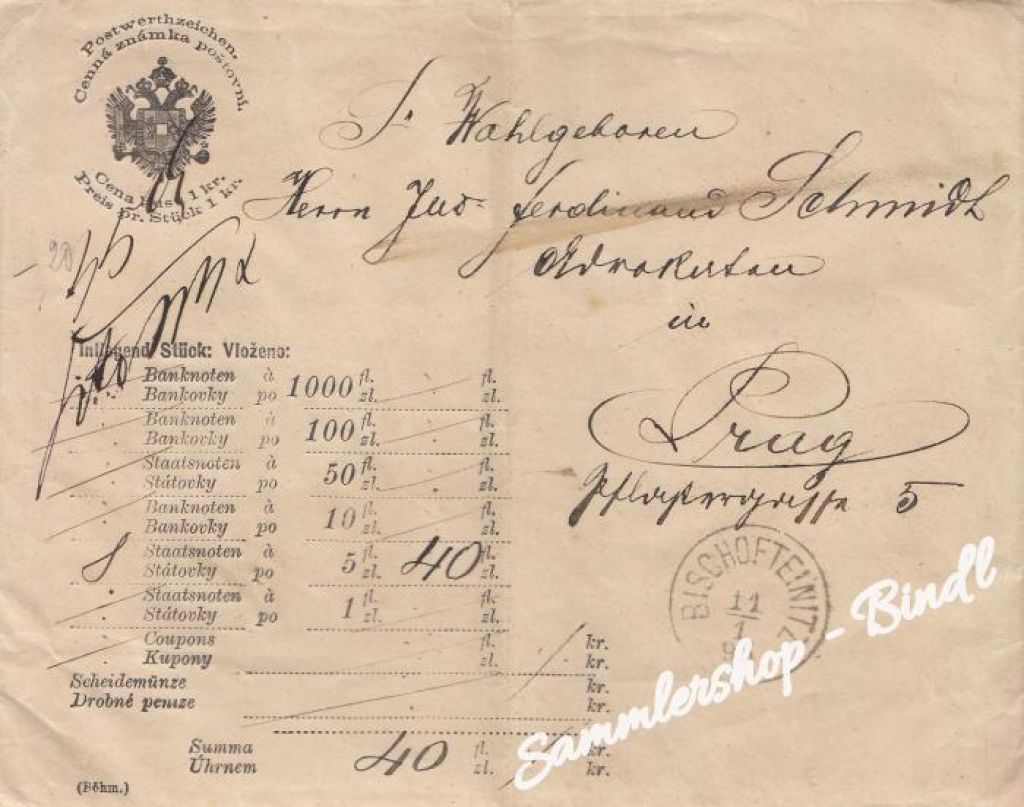 Postwerthzeichen.
Cenná známka poštovní.
Cena kusu 1 kr.
Preis pr. Stück 1 kr.
Sr Wohlgeboren
Herrn Jud. Ferdinand Schmidt
Advokaten
in
Prag
Pflastergasse 5
20
Inliegend Stück: Vloženo:
Banknoten à 1000 fl. fl.
Bankovky po zl. zl.
Banknoten à 100 fl. fl.
Bankovky po zl. zl.
Staatsnoten à 50 fl. fl.
Státovky po zl. zl.
Banknoten à 10 fl. fl.
Bankovky po zl. zl.
8 Staatsnoten à 5 fl. 40 fl.
Státovky po zl. zl.
Staatsnoten à 1 fl. fl.
Státovky po zl. zl.
Coupons fl. kr.
Kupony zl. kr.
Scheidemünze kr.
Drobné peníze kr.
Summa 40 fl. kr.
Úhrnem zl. kr.
(Böhm.)
BISCHOFTEINITZ
11
1
9
Sammlershop - Bindl